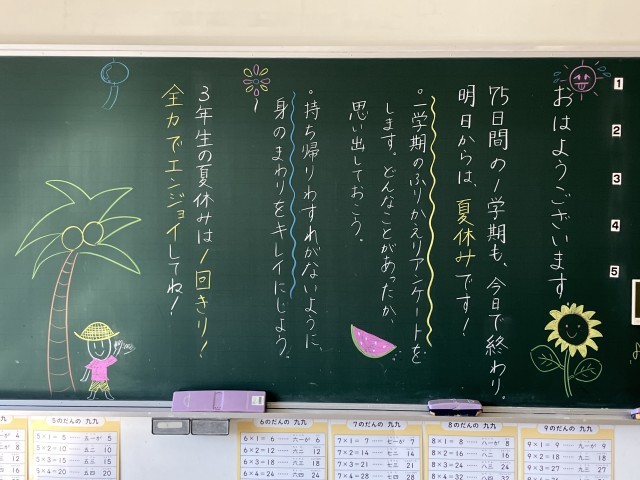 おはようございます
75日間の1学期も、今日で終わり。
明日からは、夏休みです!
。一学期のふりかえりアンケートを
します。どんなことがあったか、
思い出しておこう。
。持ち帰りわすれがないように、
身のまわりをキレイにしよう。
3年生の夏休みは1回きり!
全力でエンジョイしてね!
1
2
3
4
5
5のだんの 九九
5×1= 5 …… 五一が 5
5×2=10 …… 五二 10
5×3=15 …… 五三 15
5×4=20 …… 五四 20
6のだんの 九九
6×1= 6 …… 六一が 6
6×2=12 …… 六二 12
6×3=18 …… 六三 18
6×4=24 …… 六四 24
7のだんの 九九
7×1= 7 …… 七一が 7
7×2=14 …… 七二 14
7×3=21 …… 七三 21
7×4=28 …… 七四 28
8のだんの 九九
8×1= 8 …… 八一が 8
8×2=16 …… 八二 16
8×3=24 …… 八三 24
8×4=32 …… 八四 32
9のだんの 九九
9×1= 9 …… 九一が 9
9×2=18 …… 九二 18
9×3=27 …… 九三 27